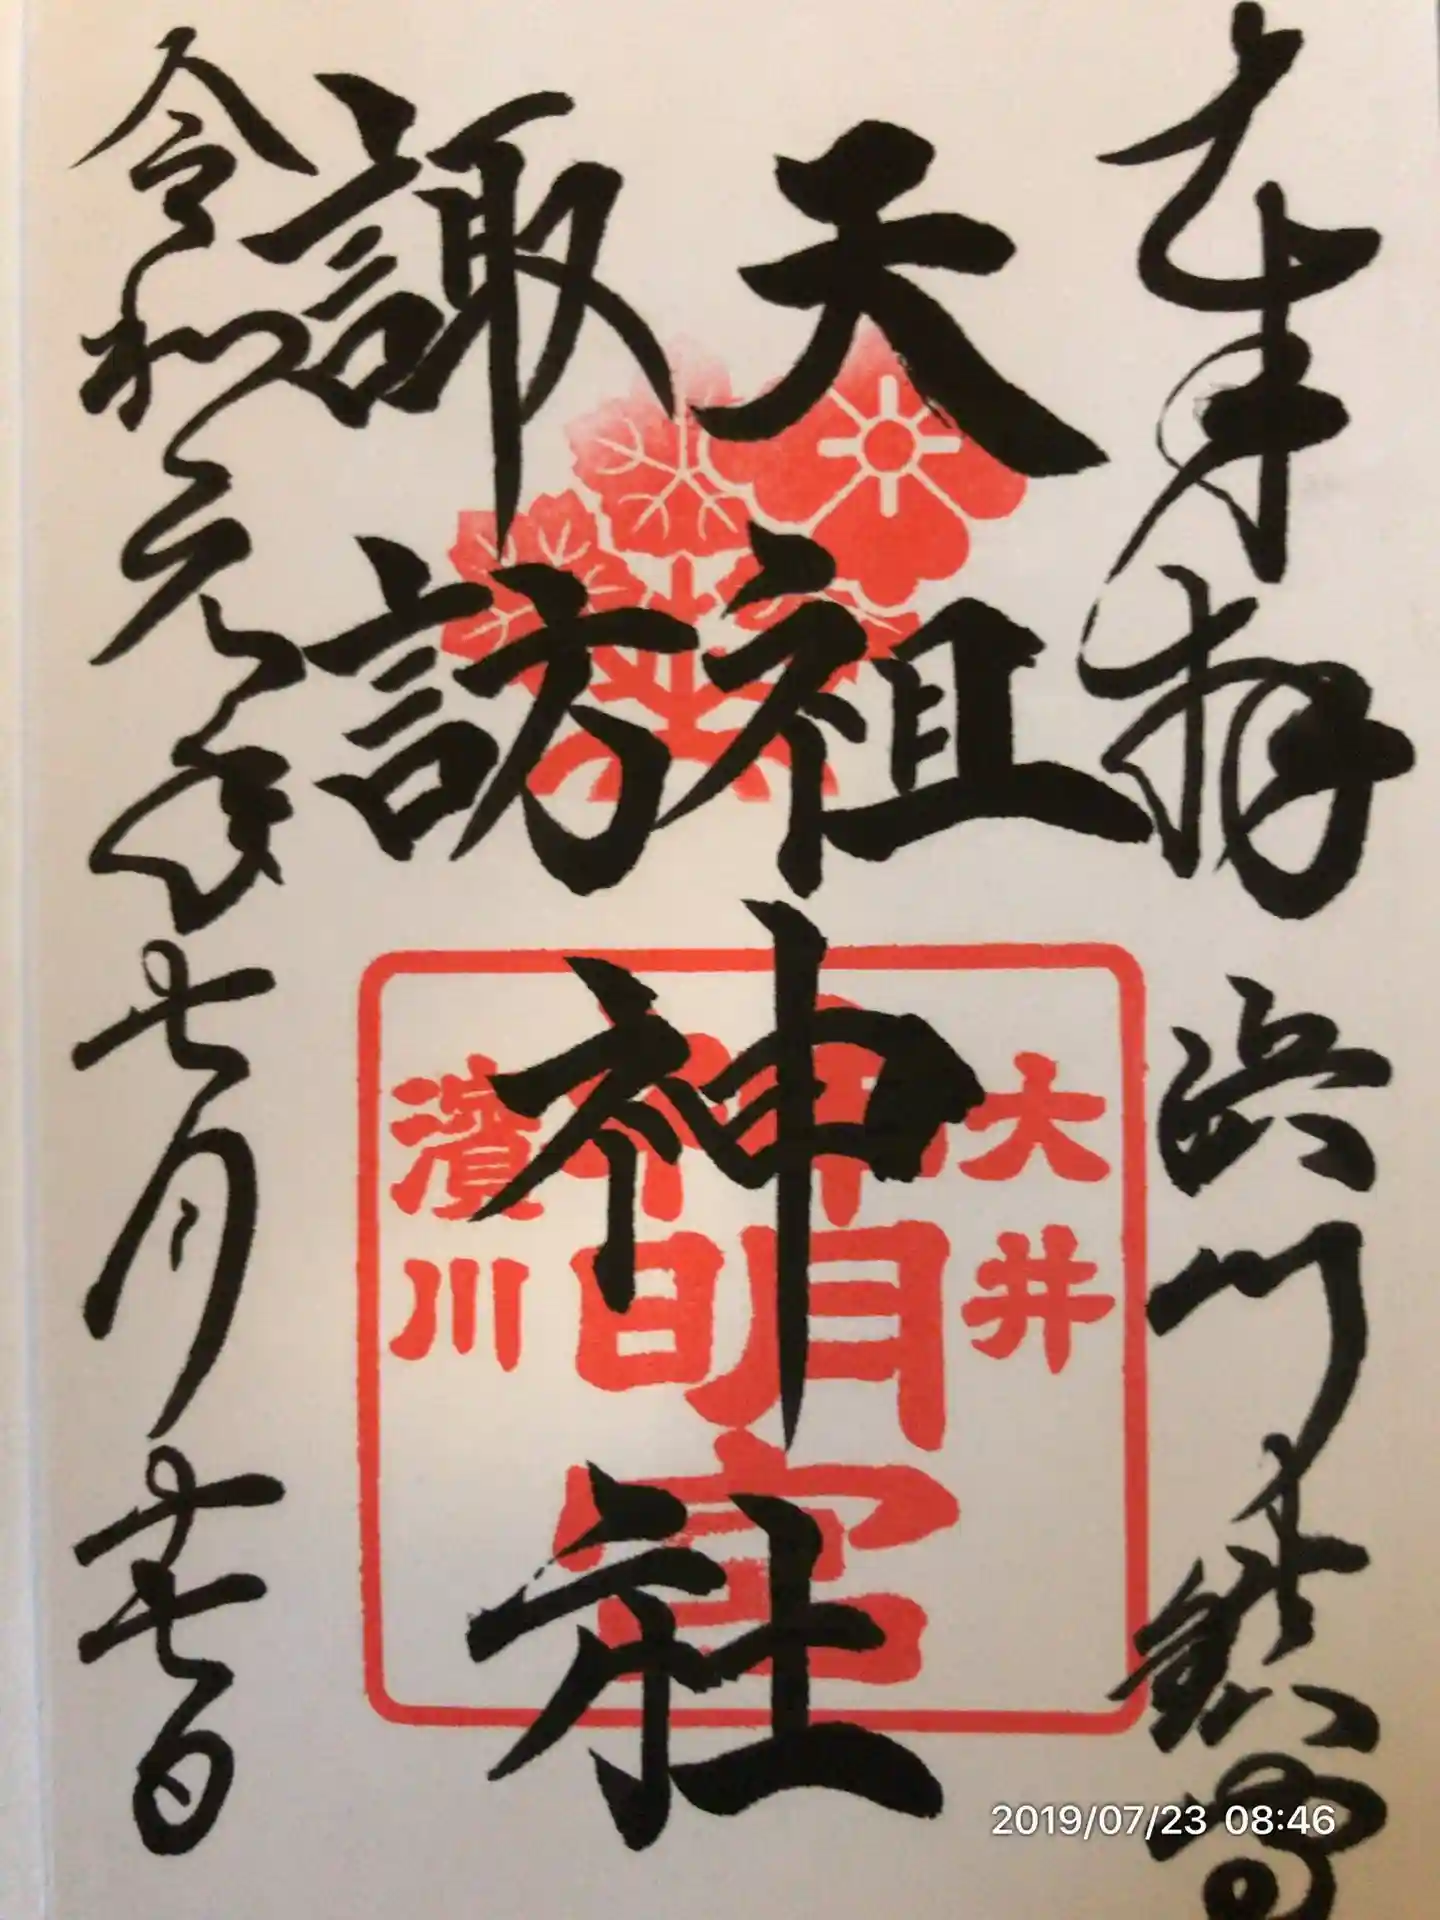 奉拝 浜川鎮守
天祖
諏訪
神社
令和元年七月十七日
大井
神明宮
濱川
2019/07/23 08:46